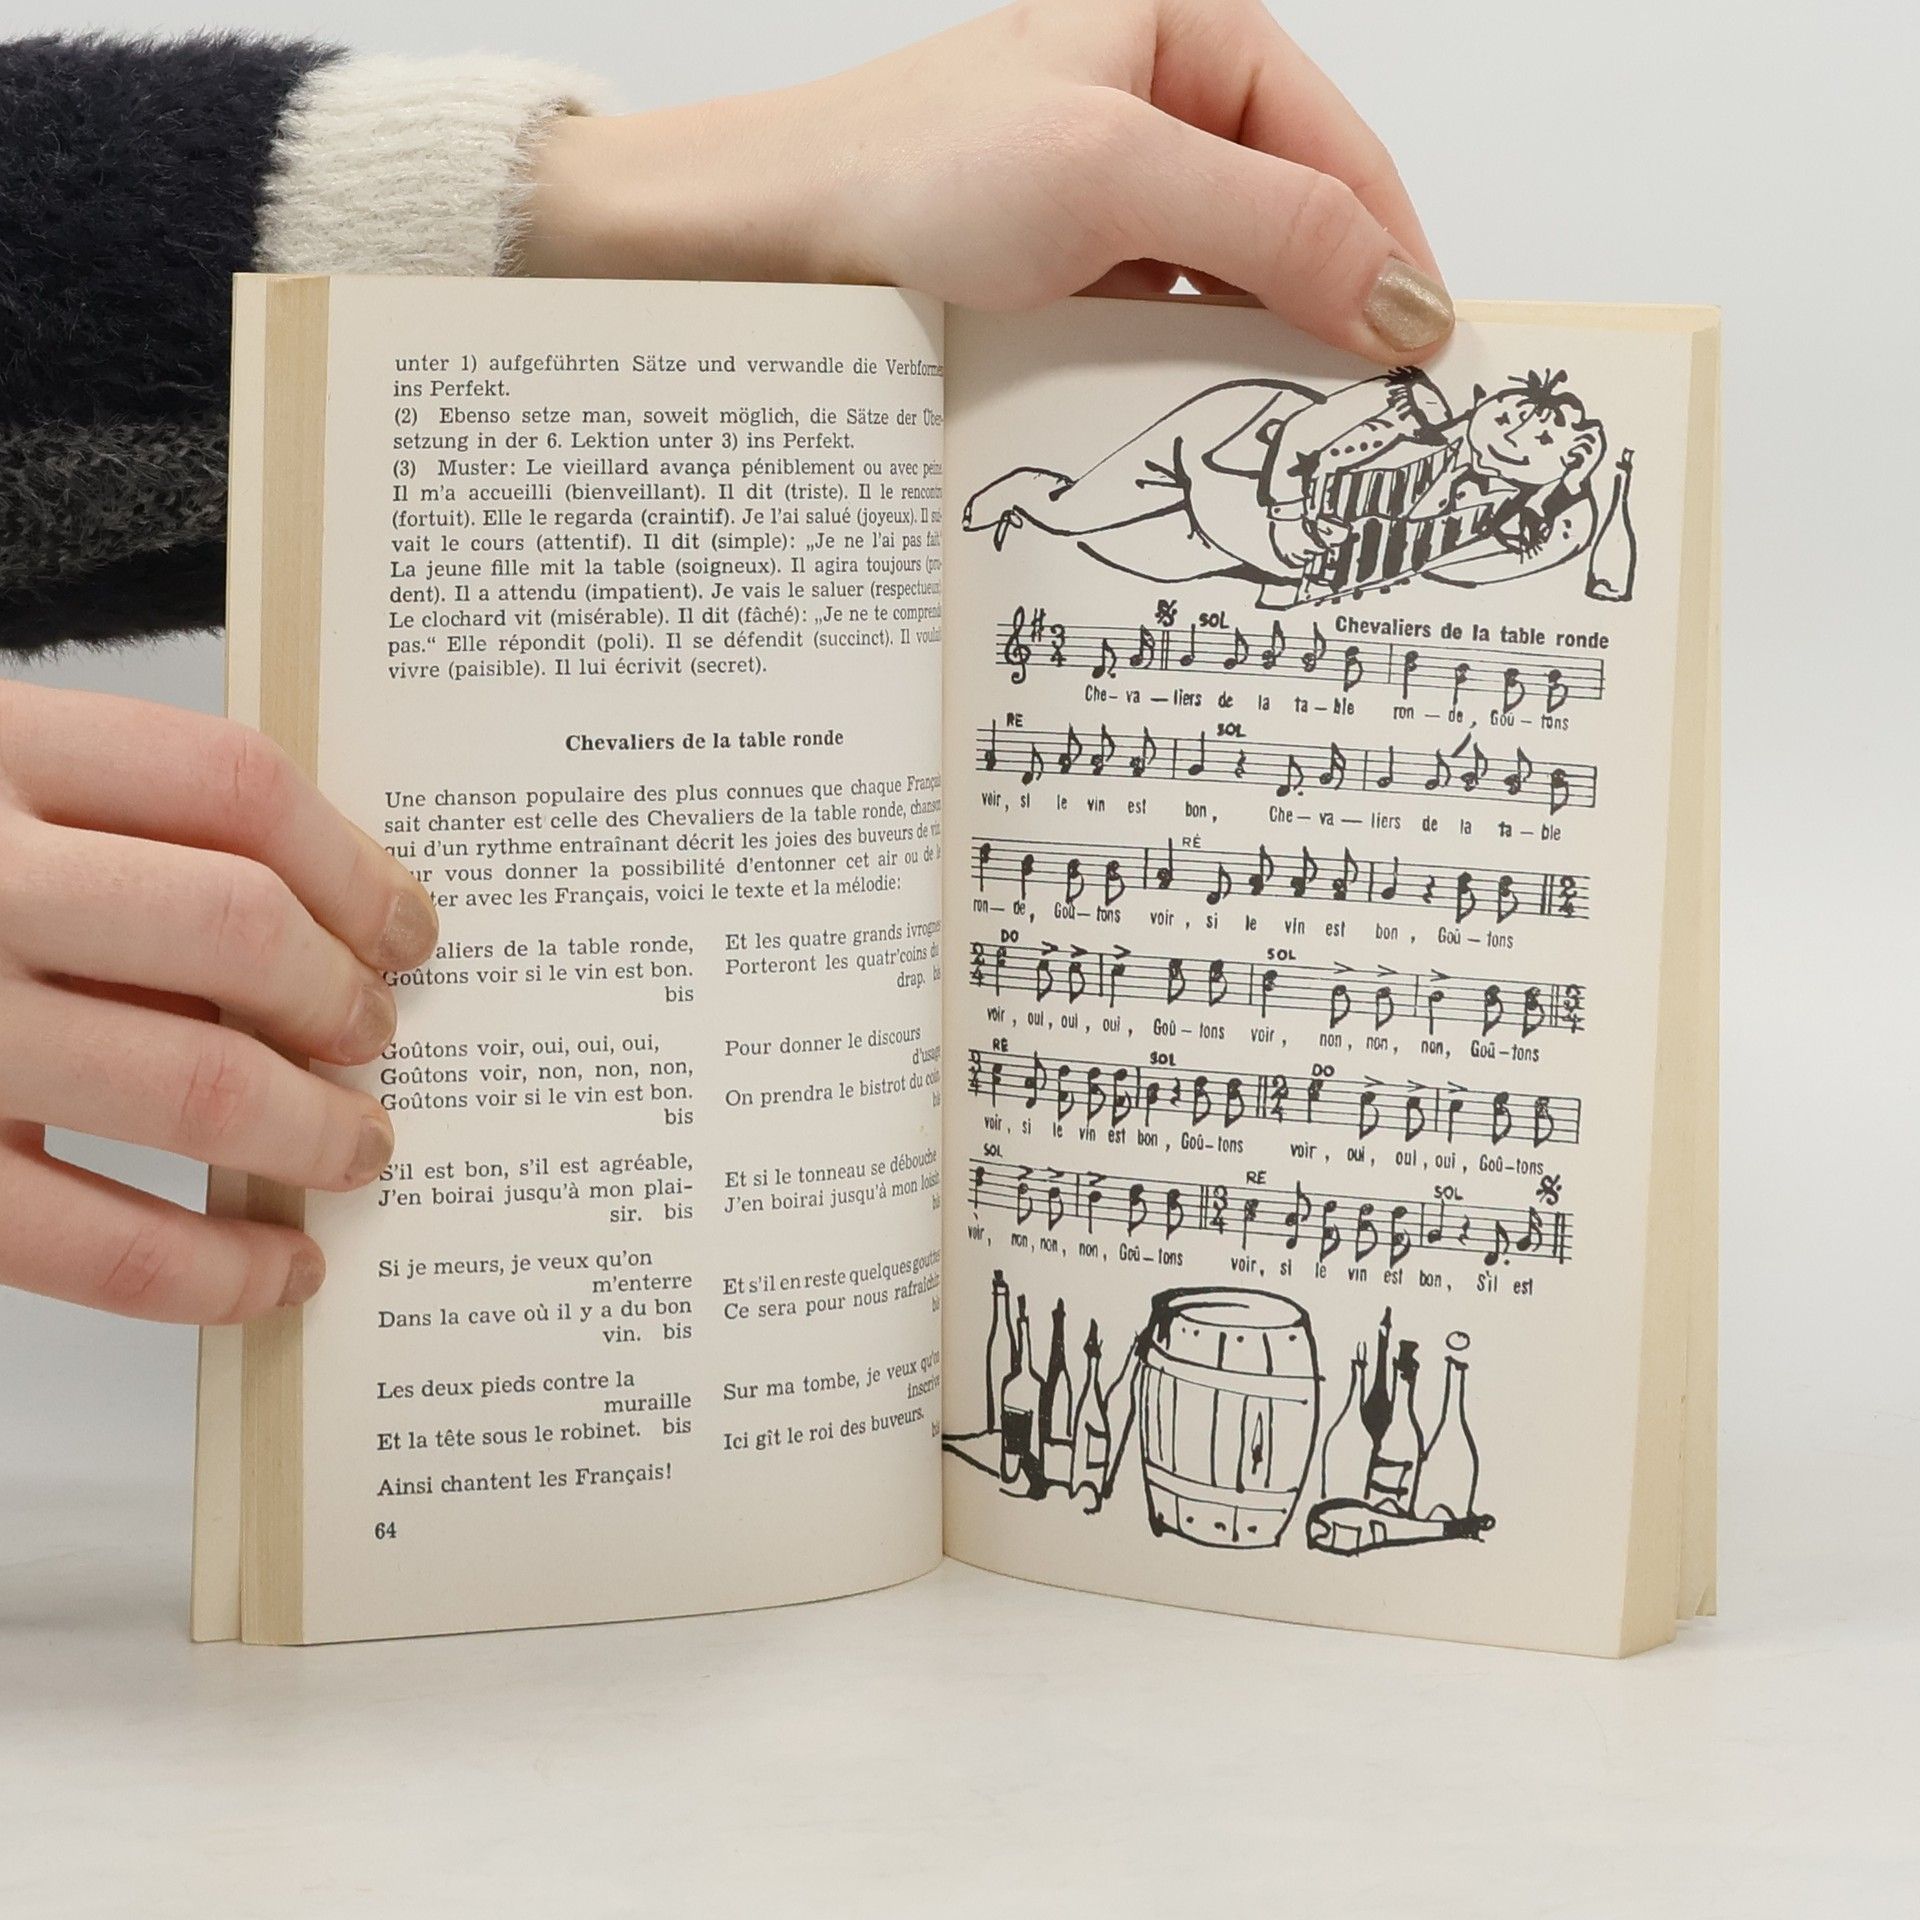 unter 1) aufgeführten Sätze und verwandle die
ins Perfekt.
(2) Ebenso setze man, soweit möglich, die Sätze der
setzung in der 6. Lektion unter 3) ins Perfekt.
(3) Muster: Le vieillard avança péniblement ou avec peine
Il m'a accueilli (bienveillant). Il dit (triste). Il le
(fortuit). Elle le regarda (craintif). Je l'ai salué (joyeux). Il
vait le cours (attentif). Il dit (simple): „Je ne l'ai pas fait
La jeune fille mit la table (soigneux). Il agira toujours
dent). Il a attendu (impatient). Je vais le saluer
Le clochard vit (misérable). Il dit (fâché): „Je ne te
pas.“ Elle répondit (poli). Il se défendit (succinct). Il
vivre (paisible). Il lui écrivit (secret).
Chevaliers de la table ronde
Une chanson populaire des plus connues que chaque
sait chanter est celle des Chevaliers de la table ronde,
qui d'un rythme entraînant décrit les joies des buveurs de
vous donner la possibilité d'entonner cet air ou de
avec les Français, voici le texte et la mélodie:
aliers de la table ronde,
Goûtons voir si le vin est bon.
bis
Goûtons voir, oui, oui, oui,
Goûtons voir, non, non, non,
Goûtons voir si le vin est bon.
bis
S'il est bon, s'il est agréable,
J'en boirai jusqu'à mon plai-
sir. bis
Si je meurs, je veux qu'on
m'enterre
Dans la cave où il y a du bon
vin. bis
Les deux pieds contre la
muraille
Et la tête sous le robinet. bis
Ainsi chantent les Français!
Et les quatre grands
Porteront les quatr'coins du
drap.
Pour donner le discours
d'usage
On prendra le bistrot du coin.
Et si le tonneau se débouche
J'en boirai jusqu'à mon loisir.
Et s'il en reste quelques gouttes
Ce sera pour nous rafraîchir.
Sur ma tombe, je veux qu'on
inscrive
Ici gît le roi des buveurs.
64
Chevaliers de la table ronde
3 4 SOL
Che– va – liers de la ta – ble ron – de, Goû – tons
RE SOL
voir, si le vin est bon, Che – va – liers de la ta – ble
RÉ 2 4
ron– de, Goû – tons voir, si le vin est bon, Goû – tons
2 4 DO SOL 3 4
voir, oui, oui, oui, Goû – tons voir, non, non, non, Goû – tons
3 4 RE SOL 2 4 DO
voir, si le vin est bon, Goû – tons voir, oui, oui, oui, Goû – tons
SOL 3 4 RE SOL
voir, non, non, non, Goû – tons voir, si le vin est bon, S'il est